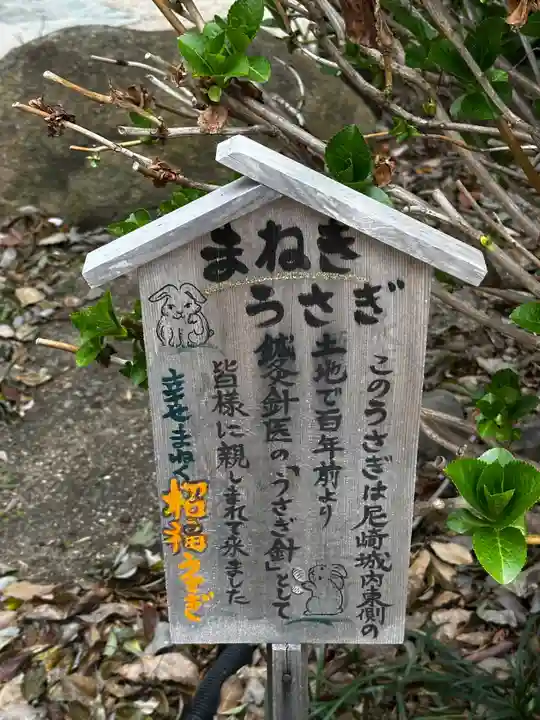 まねき
うさぎ
このうさぎは尼崎城内東側の
土地で百年前より
鍼灸針医の「うさぎ針」として
皆様に親しまれて来ました
幸せまねく
招福うさぎ